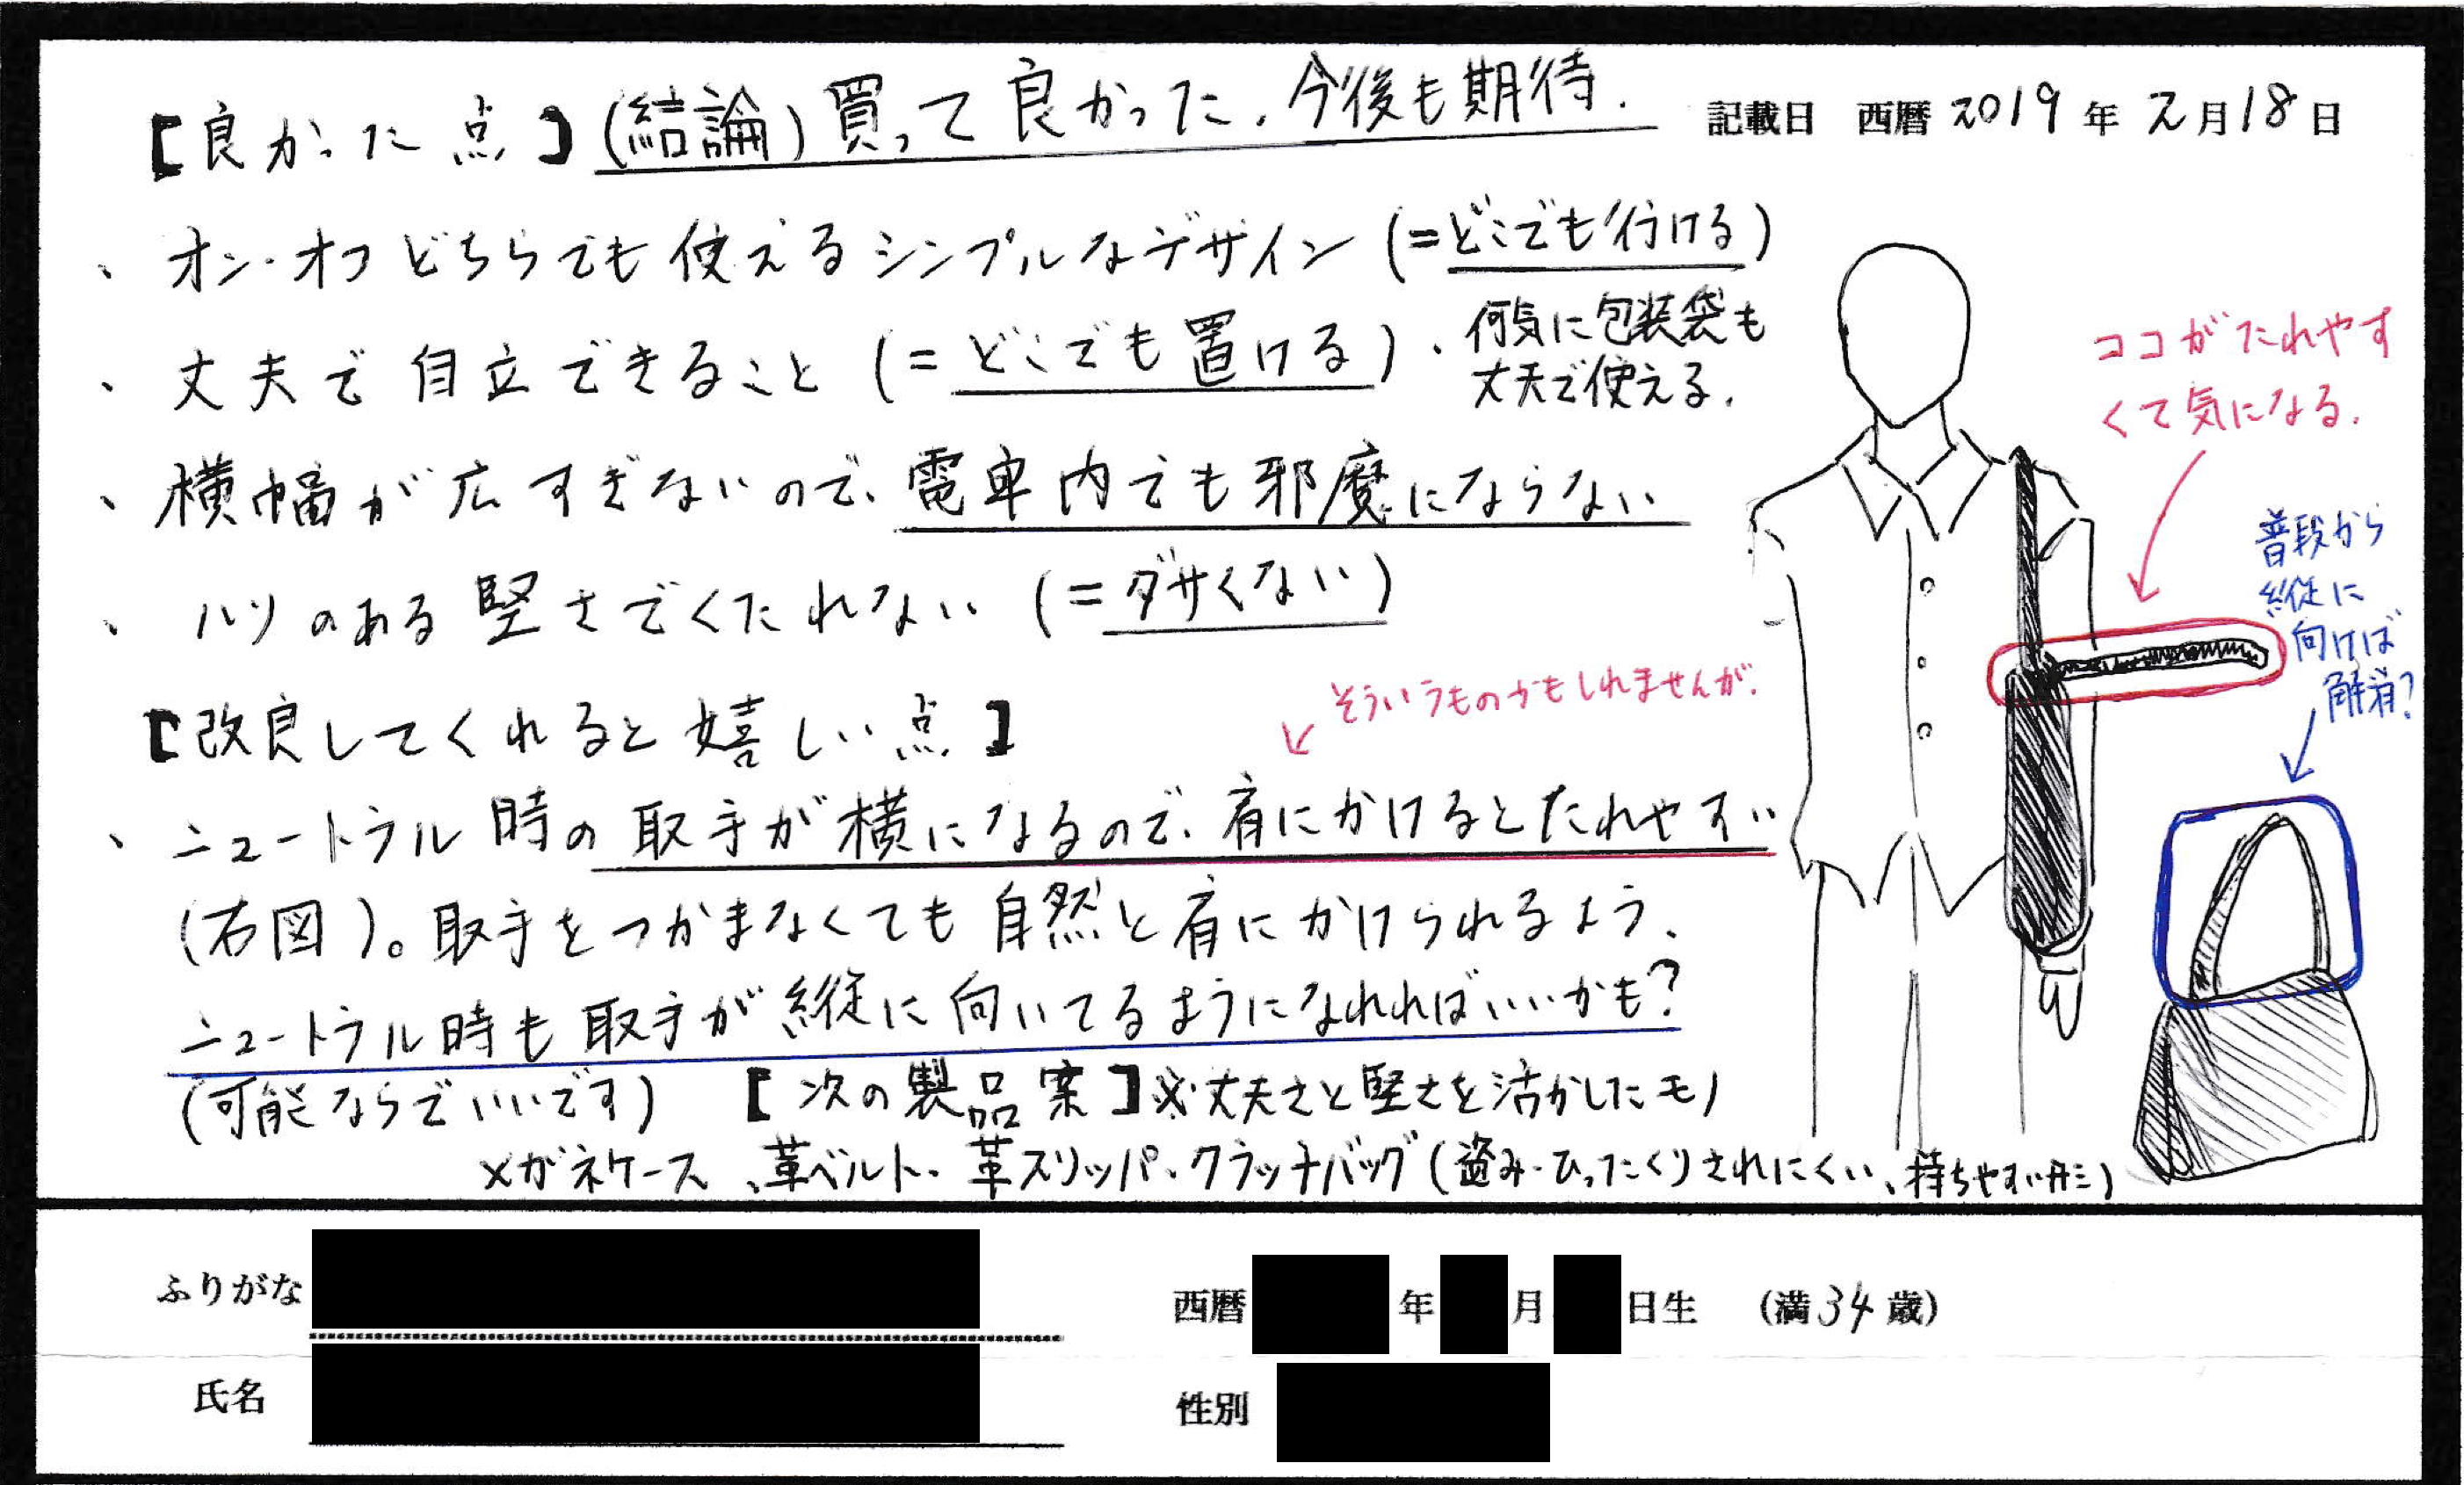 【良かった点】(結論)買って良かった、今後も期待.
記載日 西暦 2019年 2月18日
、オン・オフどちらでも使えるシンプルなデザイン(=どこでも行ける)
、丈夫で自立できること(=どこでも置ける)、何気に包装袋も
丈夫で使える.
、横幅が広すぎないので、電車内でも邪魔にならない
、ハリのある堅さでくたれない(=ダサくない)
【改良してくれると嬉しい点】
↙そういうものかもしれませんが.
、ニュートラル時の取手が横になるので、肩にかけるとたれやすい
(右図)。取手をつかまなくても自然と肩にかけられるよう、
ニュートラル時も取手が縦に向いてるようになれればいいかも?
(可能ならでいいです)【次の製品案】※丈夫さと堅さを活かしたモノ
メガネケース、革ベルト・革スリッパ・クラッチバッグ(盗み・ひったくりされにくい、持ちやすい形)
ココがたれやす
くて気になる.
普段から
縦に
向けば
解消?
ふりがな
西暦 年 月 日生 (満34歳)
氏名
性別